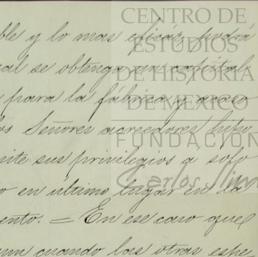 ble y lo mas eficaz, podrá
cual se obtenga un capital
para la fábrica y
los Señores acreedores hipo
mite sus privilegios a solo
o en ultimo lugar en la
ento. = En ese caso que
aun cuando las otras espe
CENTRO DE
ESTUDIOS
DE HISTORIA
DE MEXICO
FUNDACIÓN
Carlos Slim